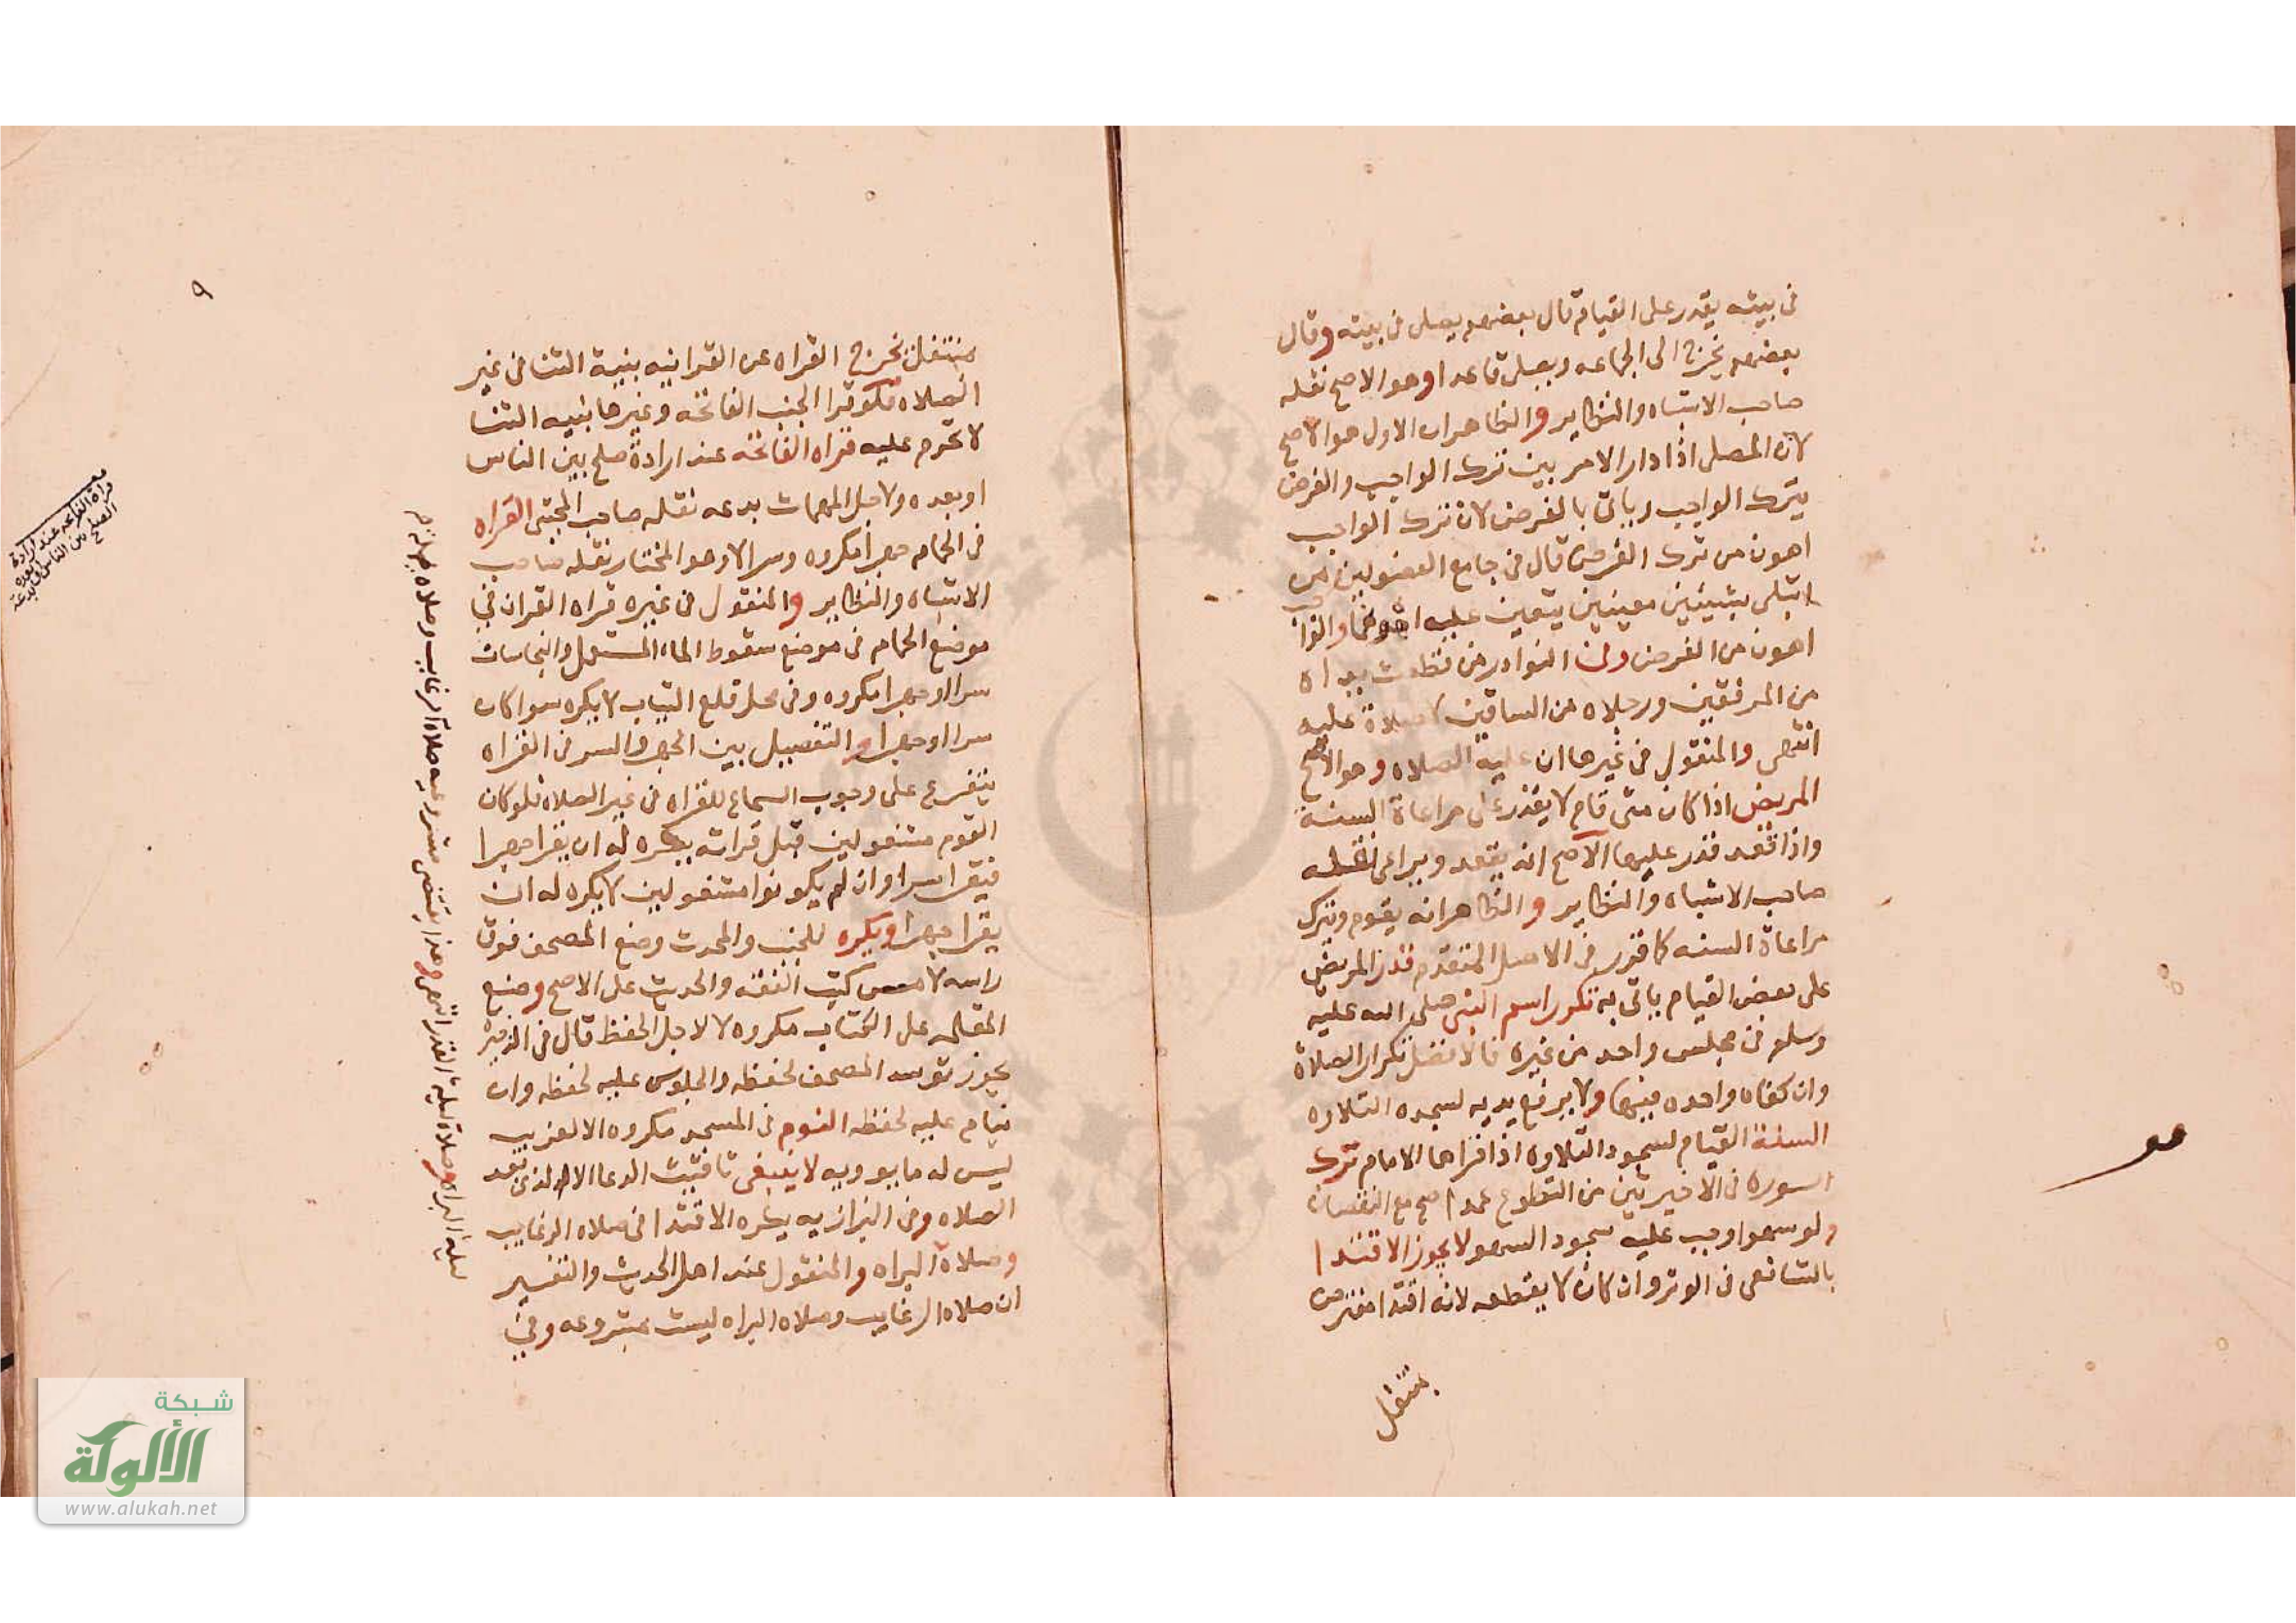 في بيته يقدر على القيام قال بعضهم يصلى في بيته وقال
بعضهم يخرج الى الجماعه ويصلى قاعدا وهو الاصح نقله
صاحب الاشباه والنظاير والظاهران الاول هو الاصح
لان المصلى اذا دار الامر بين ترك الواجب والفرض
يترك الواجب وياتى بالفرض لان ترك الواجب
اهون من ترك الفرض قال في جامع الفصولين من
ابتلى بشيئين معينين يتعين عليه اهونهما والواجب
اهون من الفرض وفي النوادر من قطعت يداه
من المرفقين ورجلاه من الساقين لا صلاة عليه
انتهى والمنقول في غيرها ان عليه الصلاه وهو الاصح
المريض اذا كان متى قام لا يقدر على مراعاة السنة
واذا قعد قدر عليها الاصح انه يقعد ويراعى نقله
صاحب الاشباه والنظاير والظاهر انه يقوم ويترك
مراعاة السنه كما قرر في الاصل المتقدم قدر المريض
على بعض القيام ياتى به تكرر اسم النبى صلى الله عليه
وسلم في مجلس واحد من غيره فالافضل تكرار الصلاة
وان كفاه واحده فيهما ولا يرفع يديه لسجده التلاوه
السنة القيام لسجود التلاوه اذا قراها الامام ترك
السوره في الاخيرتين من التطوع عمدا صح مع النقصان
ولو سهوا وجب عليه سجود السهو لا يجوز الاقتدا
بالشافعى في الوتر وان كان لا يقطعه لانه اقتدا مفترض
بمتنفل
٩
بمتنفل تخرج القراه عن القرانيه بنية الثنا في غير
الصلاه فلو قرا الجنب الفاتحه وغيرها بنيه الثنا
لا تحرم عليه قراه الفاتحه عند ارادة صلح بين الناس
او بعده ولاجل المهمات بدعه نقله صاحب المجتبى القراه
في الحمام جهرا مكروه وسرا لا وهو المختار نقله صاحب
الاشباه والنظاير والمنقول في غيره قراه القران في
موضع الحمام في موضع سقوط الماء المستعمل والنجاسات
سرا او جهرا مكروه وفي محل قلع الثياب لا يكره سوا كان
سرا او جهرا والتفصيل بين الجهر والسر في القراه
يتفرع على وجوب السماع للقراه في غير الصلاه فلو كان
القوم مشغولين قبل قراته يكره له ان يقرا جهرا
فيقرا سرا وان لم يكونوا مشغولين لا يكره له ان
يقرا جهرا ويكره للجنب والمحدث وضع المصحف فوق
راسه لا مس كتب الفقه والحديث على الاصح وضع
المقلمه على الكتاب مكروه لا لاجل الحفظ قال في الذخيره
يجوز توسد المصحف لحفظه والجلوس عليه لحفظه وان
ينام عليه لحفظه النوم في المسجد مكروه الا لغريب
ليس له ما يوويه لا ينبغى الدعا الا الذى بعد
الصلاه وفي البزازيه يكره الاقتدا في صلاه الرغايب
وصلاة البراه والمنقول عند اهل الحديث والتفسير
ان صلاه الرغايب وصلاه البراه ليست بمشروعه وفي
ليلة البراه وصلاة ليلة القدر انتهى وهذا يقتضى مشروعيه صلاة الرغايب وصلاه
قراة الفاتحه عند ارادة
الصلح بين الناس او بعده بدعة
شبكة
الألوكة
www.alukah.net